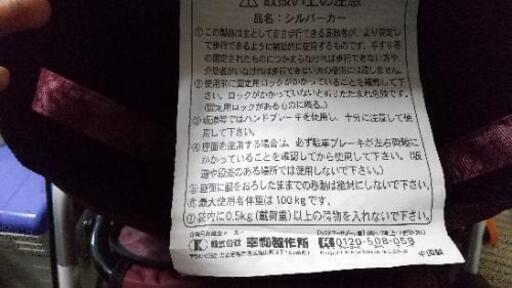 取扱い上の注意
品名：シルバーカー
①この製品は主として自立歩行できる高齢者が、より安定
して歩行できるように補助的に使用するものです。手すり等
の固定されたものにつかまらなければ歩行できない方や、
介護者がいなければ歩行できない方の使用には適しません。
②使用前に固定用ロックがかかっていることを確認して下
さい。ロックがかかっていないと折りたたまれ危険です。
(固定用ロックがあるものに限る。)
③坂道等ではハンドブレーキを使用し、十分に注意して使
用して下さい。
④座面を使用する場合は、必ず駐車ブレーキが左右両輪に
かかっていることを確認してから使用して下さい。(坂
道や段差のある場所では使用しないで下さい。)
⑤座面に腰をおろしたままでの移動は絶対にしないで下さい。
⑥最大使用者体重は100kgです。
⑦袋内に0.5kg(載荷重)以上の荷物を入れないで下さい。
株式会社 幸和製作所 0120-508-059
中国製